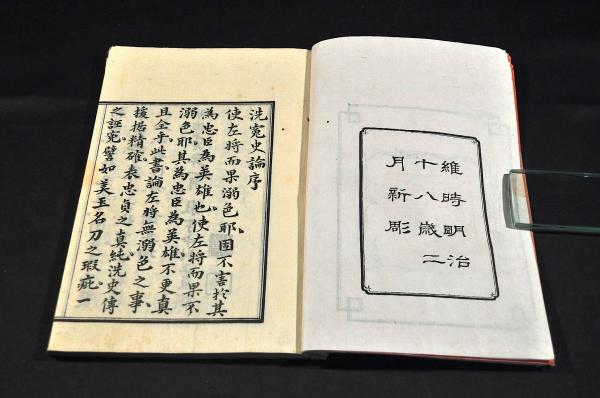 維時明治
十八歳二
月新彫
洗寃史論序
使左將而果溺色耶固不害於其
為忠臣為英雄也使左將而果不
溺色耶其為忠臣為英雄不更真
且全乎此書論左將無溺色之事
援据精確表忠貞之真純洗史傳
之誣寃譬如美玉名刀之瑕疵一